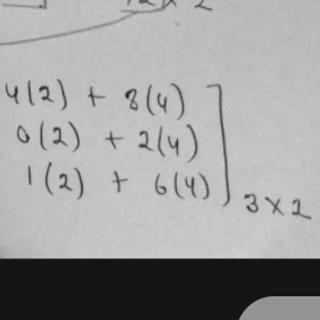 4(2) + 8(4)
0(2) + 2(4)
1(2) + 6(4)
3×2